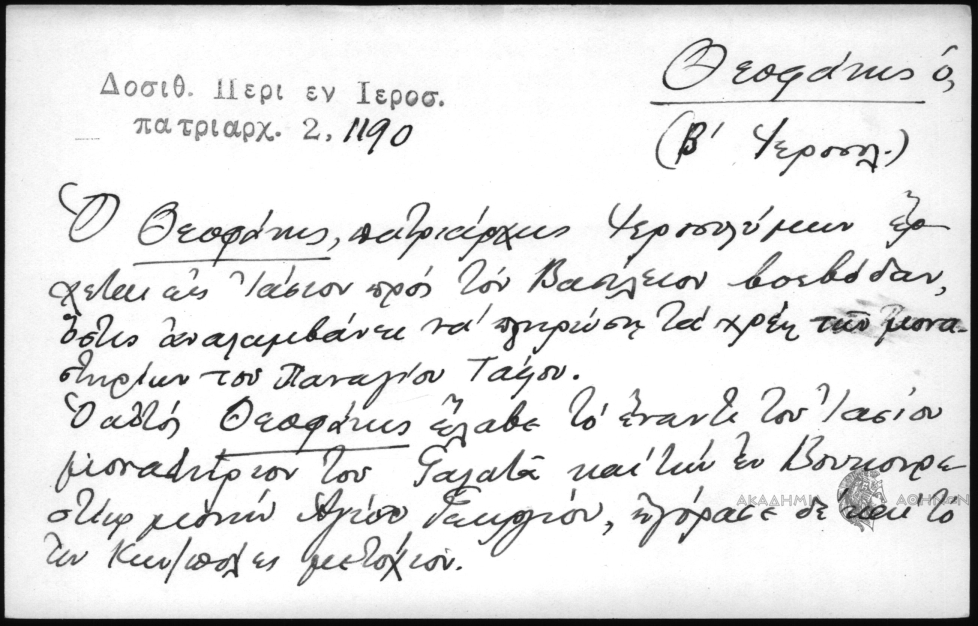 Θεοφάνης ὁ
(Β' Ἱεροσολ.)
Δοσιθ. Περι εν Ιεροσ.
πατριαρχ. 2, 1190
Ὁ Θεοφάνης, πατριάρχης Ἱεροσολύμων ἔρ-
χεται εἰς Ἰάσιον πρός τόν Βασίλειον βοεβόδαν,
ὅστις ἀναλαμβάνει νά πληρώσῃ τά χρέη τῶν μονα-
στηρίων του Παναγίου Τάφου.
Ὁ αὐτός Θεοφάνης ἔλαβε τό ἔναντι του Ἰασίου
μοναστήριον του Γαλατᾶ καί τήν ἐν Βουκουρε
στίῳ μονήν Ἁγίου Γεωργίου, ἠγόρασε δέ καί τό
ἐν Κων/πόλει μετόχιον.
ΑΚΑΔΗΜΙΑ ΑΘΗΝΩΝ